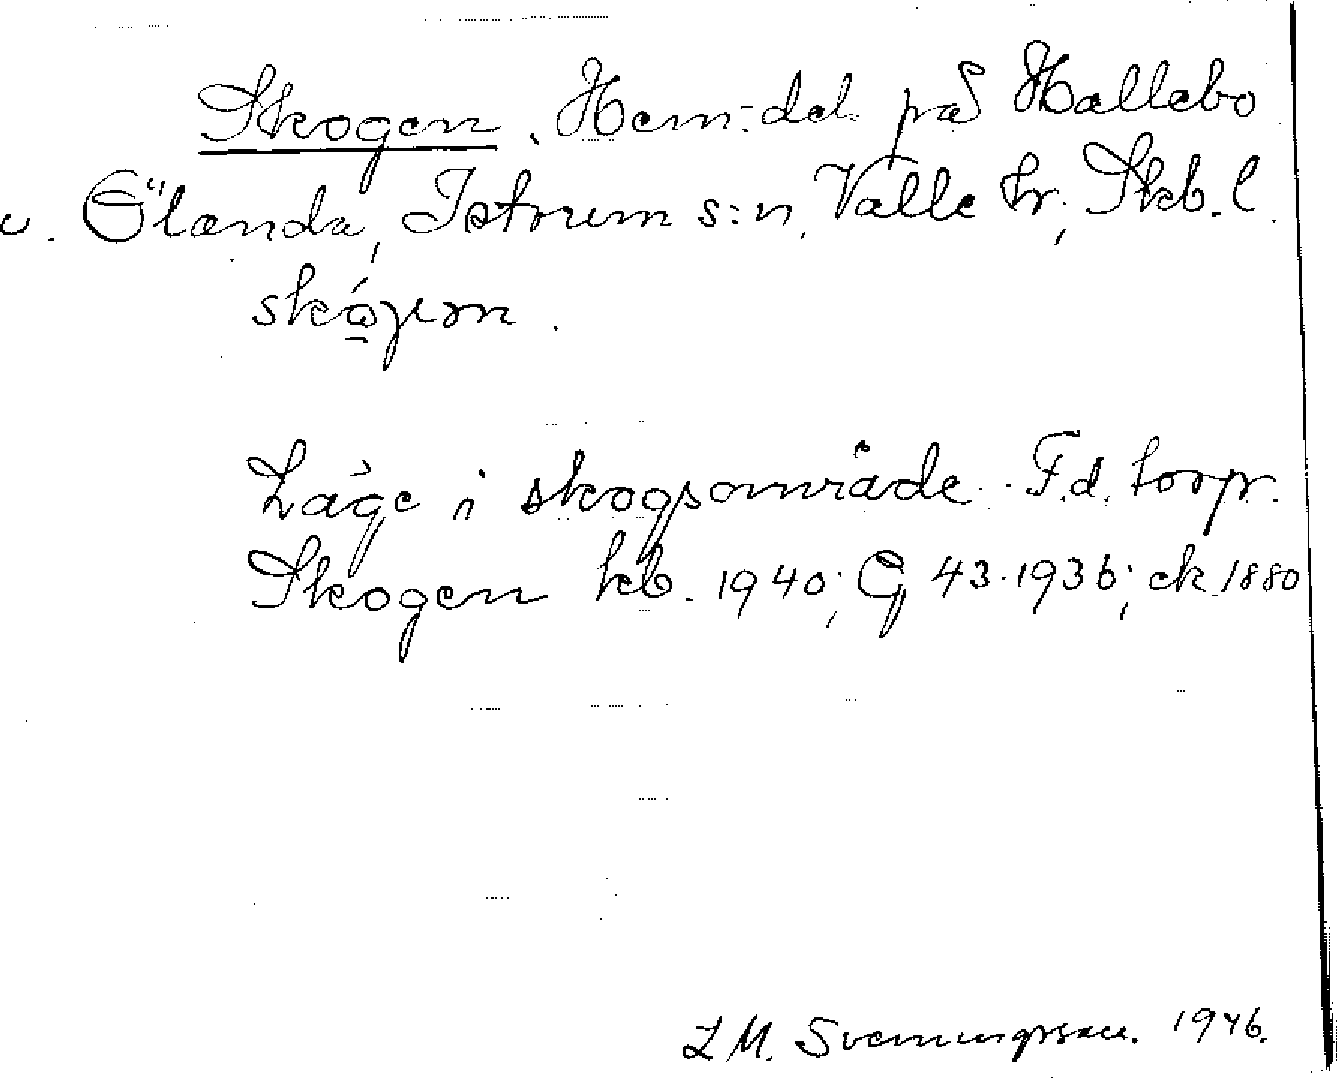 Skogen. Hem:del på Hallebo
u. Ölanda, Istrum s:n, Valle hr; Skb. l.
Läge i skogsområde. F.d. torp.
Skogen kb. 1940; G 43. 1936; ek 1880
L M. Svenungsson. 1946.